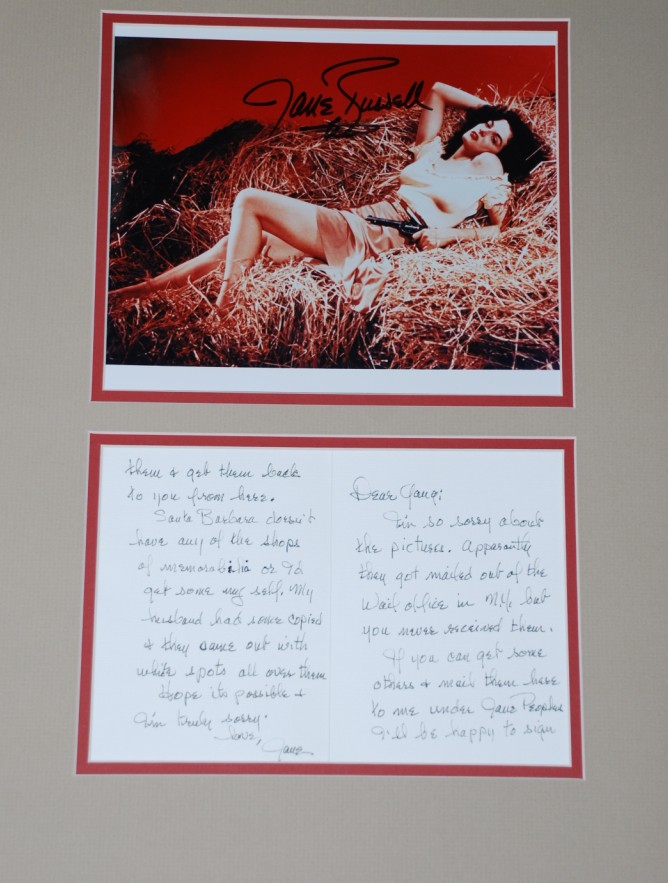 Jane Russell
Dear Gang:
I'm so sorry about
the pictures. Apparantly
they got mailed out of the
office in N.Y. but
you never received them.
If you can get some
others & mail them here
to me under Jane Peoples
I'll be happy to sign
them & get them back
to you from here.
Santa Barbara doesn't
have any of the shops
of memorabilia or I'd
get some my self. My
husband had some copied
& they came out with
white spots all over them
I hope its possible &
I'm truly sorry.
Love,
Jane